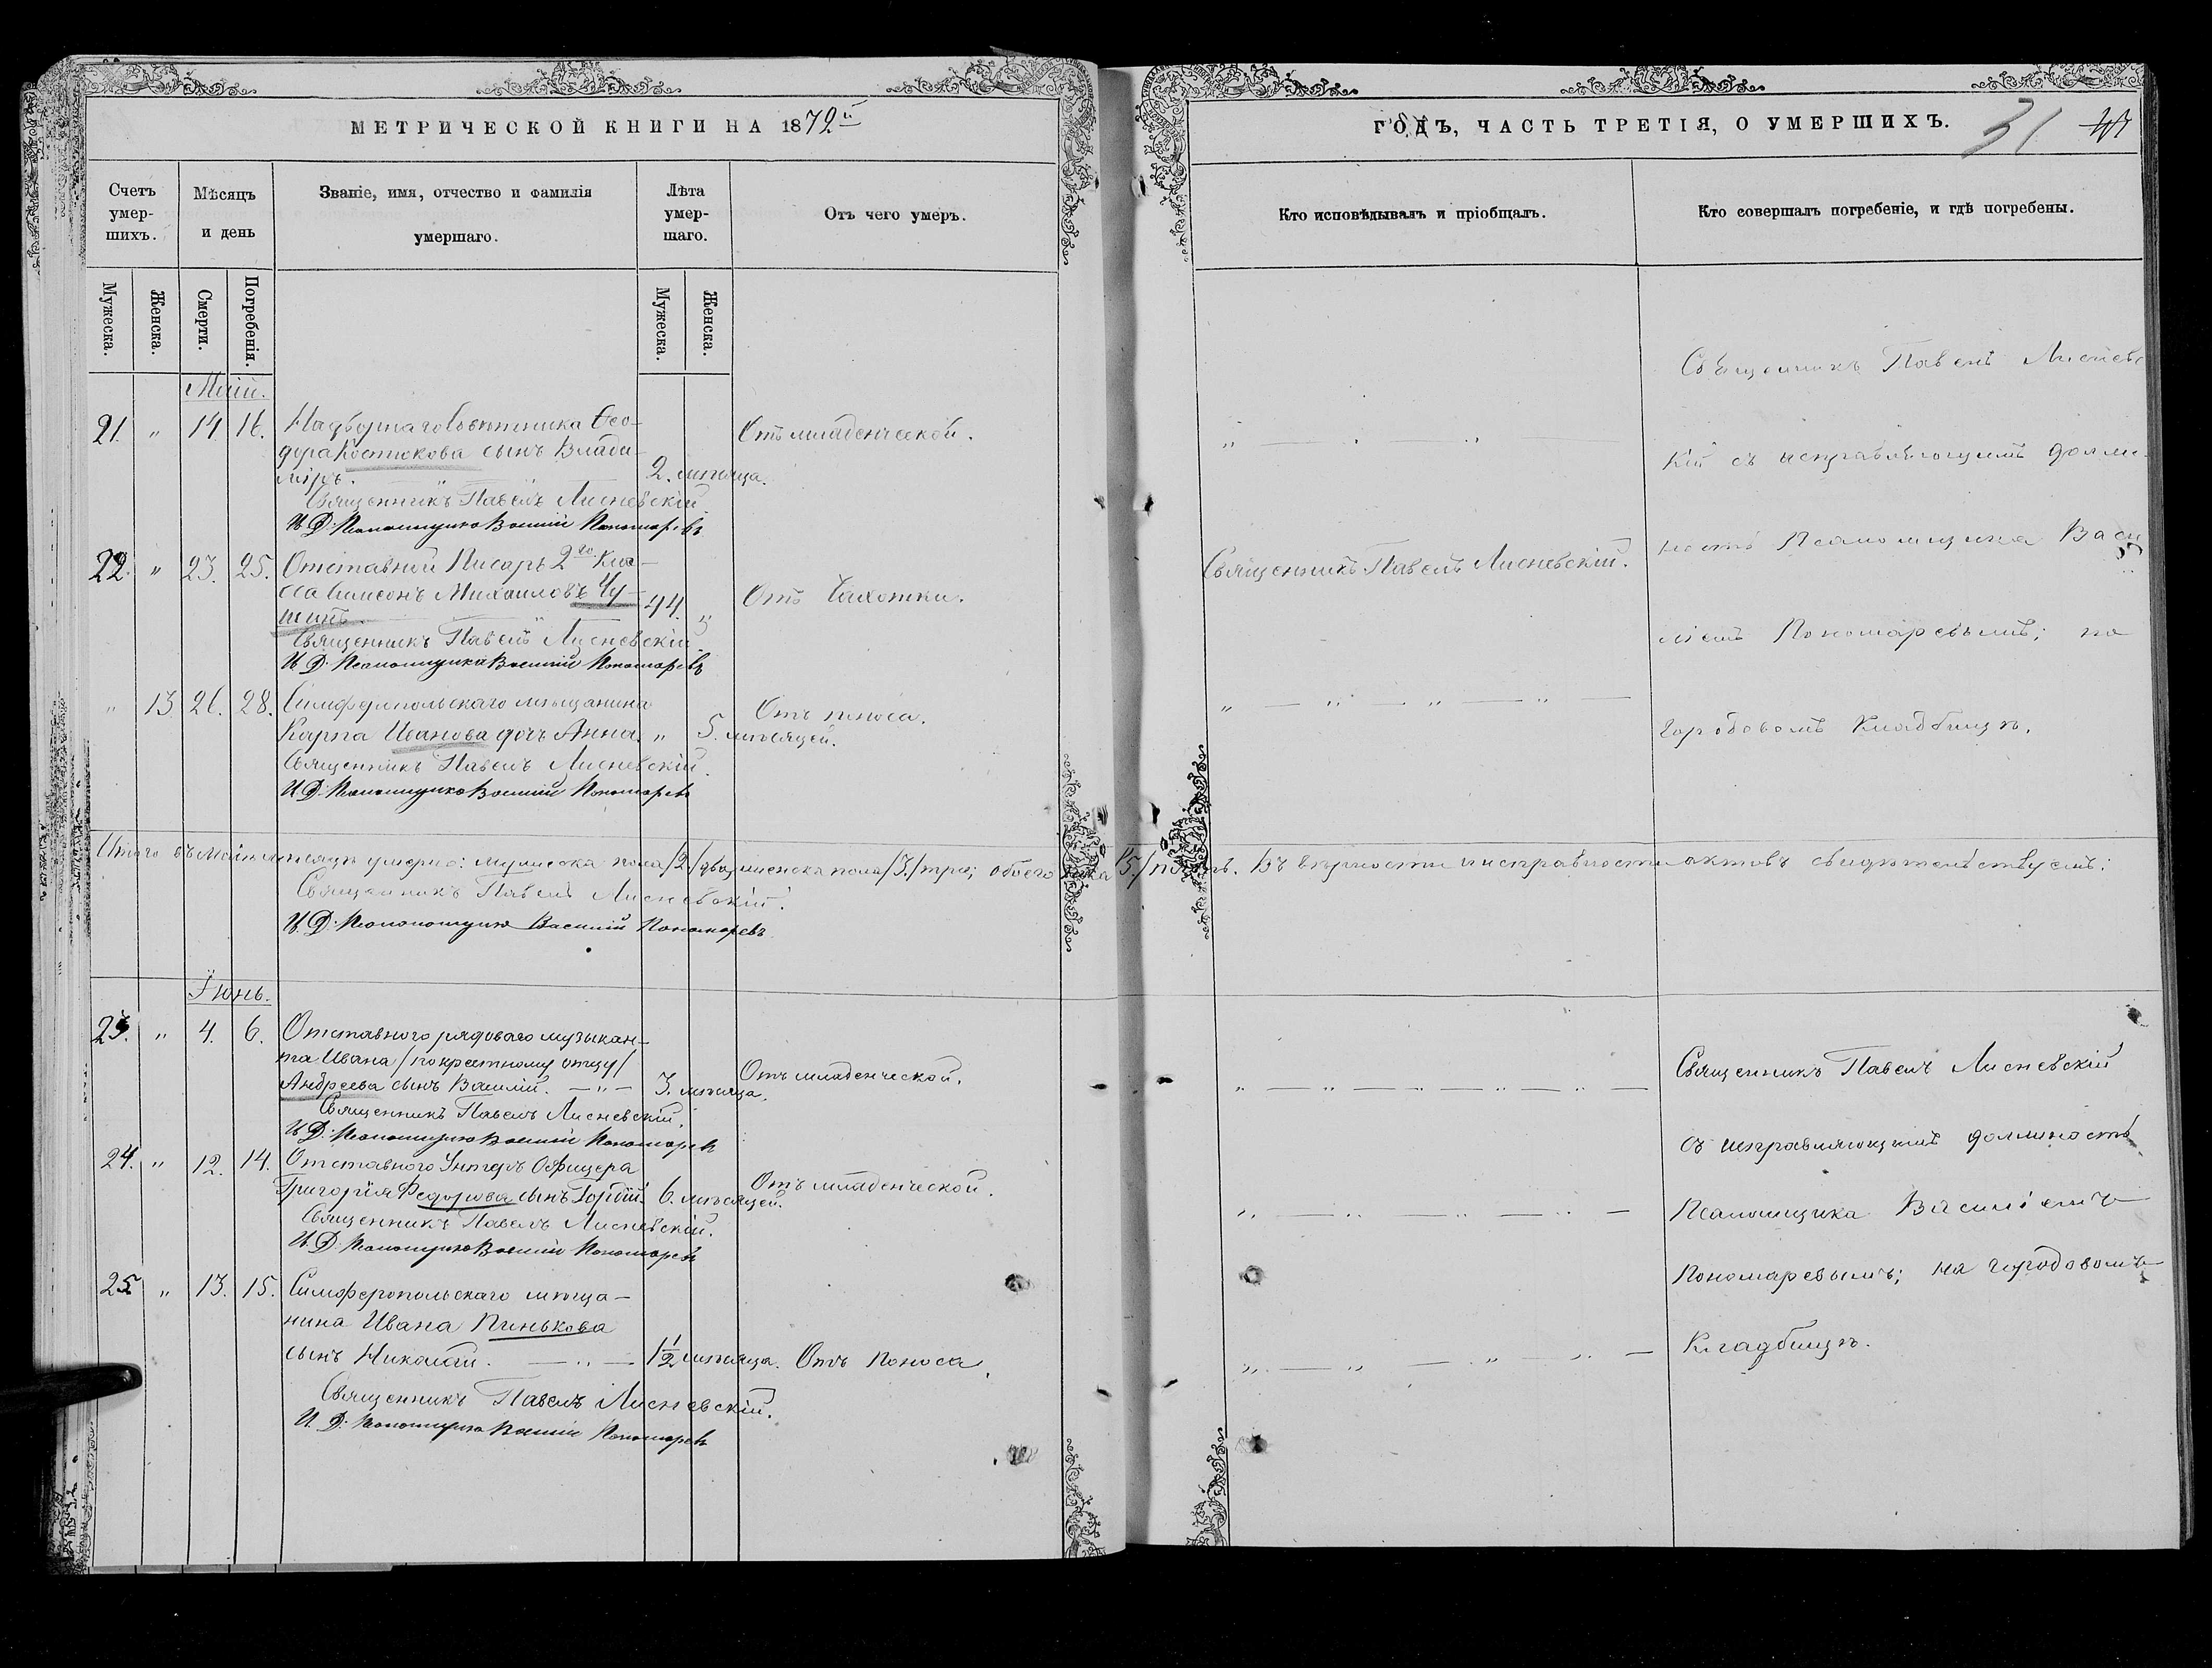 МЕТРИЧЕСКОЙ КНИГИ НА 1872й
Счетъ умерших.
Мѣсяцъ и день
Званіе, имя, отчество и фамилія умершаго.
Лѣта умершаго.
Отъ чего умеръ.
Мужеска.
Женска.
Смерти.
Погребенія.
Мужеска.
Женска.
Май.
21. " 14 16. Надворнаго Совѣтника Ѳео-
дора Костюкова сынъ Влади-
міръ. 2. мѣсяца. Отъ младенческой.
Священникъ Павелъ Лисневскій
И. Д. Псаломщика Василій Пономаревъ
22. " 23. 25. Отставной Писарь 2го Клас-
са Симеонъ Михаиловъ Чу-
шинъ. 44. " Отъ Чахотки.
Священникъ Павелъ Лисневскій.
И. Д. Псаломщика Василій Пономаревъ
" 13 26. 28. Симферопольскаго мѣщанина
Карпа Иванова дочь Анна. " 5. мѣсяцей. Отъ поноса.
Священникъ Павелъ Лисневскій.
И. Д. Псаломщика Василій Пономаревъ
Итого въ Маѣ мѣсяцѣ умерло: мужеска пола /2/ два, женска пола /3./ три; обоего пола /5./ пять. Въ вѣрности и исправности актовъ свидѣтельствуемъ:
Священникъ Павелъ Лисневскій.
И. Д. Псаломщика Василій Пономаревъ
Іюнь.
23. " 4. 6. Отставного рядоваго музыкан-
та Ивана /по крестному отцу/
Андреева сынъ Василій. 3. мѣсяца. Отъ младенческой.
Священникъ Павелъ Лисневскій.
И. Д. Псаломщика Василій Пономаревъ
24. " 12. 14. Отставного Унтеръ Офицера
Григорія Федорова сынъ 6. мѣсяцей. Отъ младенческой.
Священникъ Павелъ Лисневскій.
И. Д. Псаломщика Василій Пономаревъ
25 " 13. 15. Симферопольскаго мѣща-
нина Ивана Пинькова
сынъ Николай. 1½ мѣсяца. Отъ поноса.
Священникъ Павелъ Лисневскій.
И. Д. Псаломщика Василій Пономаревъ
ГОДЪ, ЧАСТЬ ТРЕТІЯ, О УМЕРШИХЪ.
31
Кто исповѣдывалъ и пріобщалъ.
Кто совершалъ погребеніе, и гдѣ погребены.
Священникъ Павелъ Лисневс
кій съ исправляющимъ долж-
ность Псаломщика Васи
Священникъ Павелъ Лисневскій.
ліемъ Пономаревымъ; на
городовомъ Кладбищѣ.
Священникъ Павелъ Лисневскій
съ исправляющимъ должность
Псаломщика Василіемъ
Пономаревымъ; на городовомъ
Кладбищѣ.